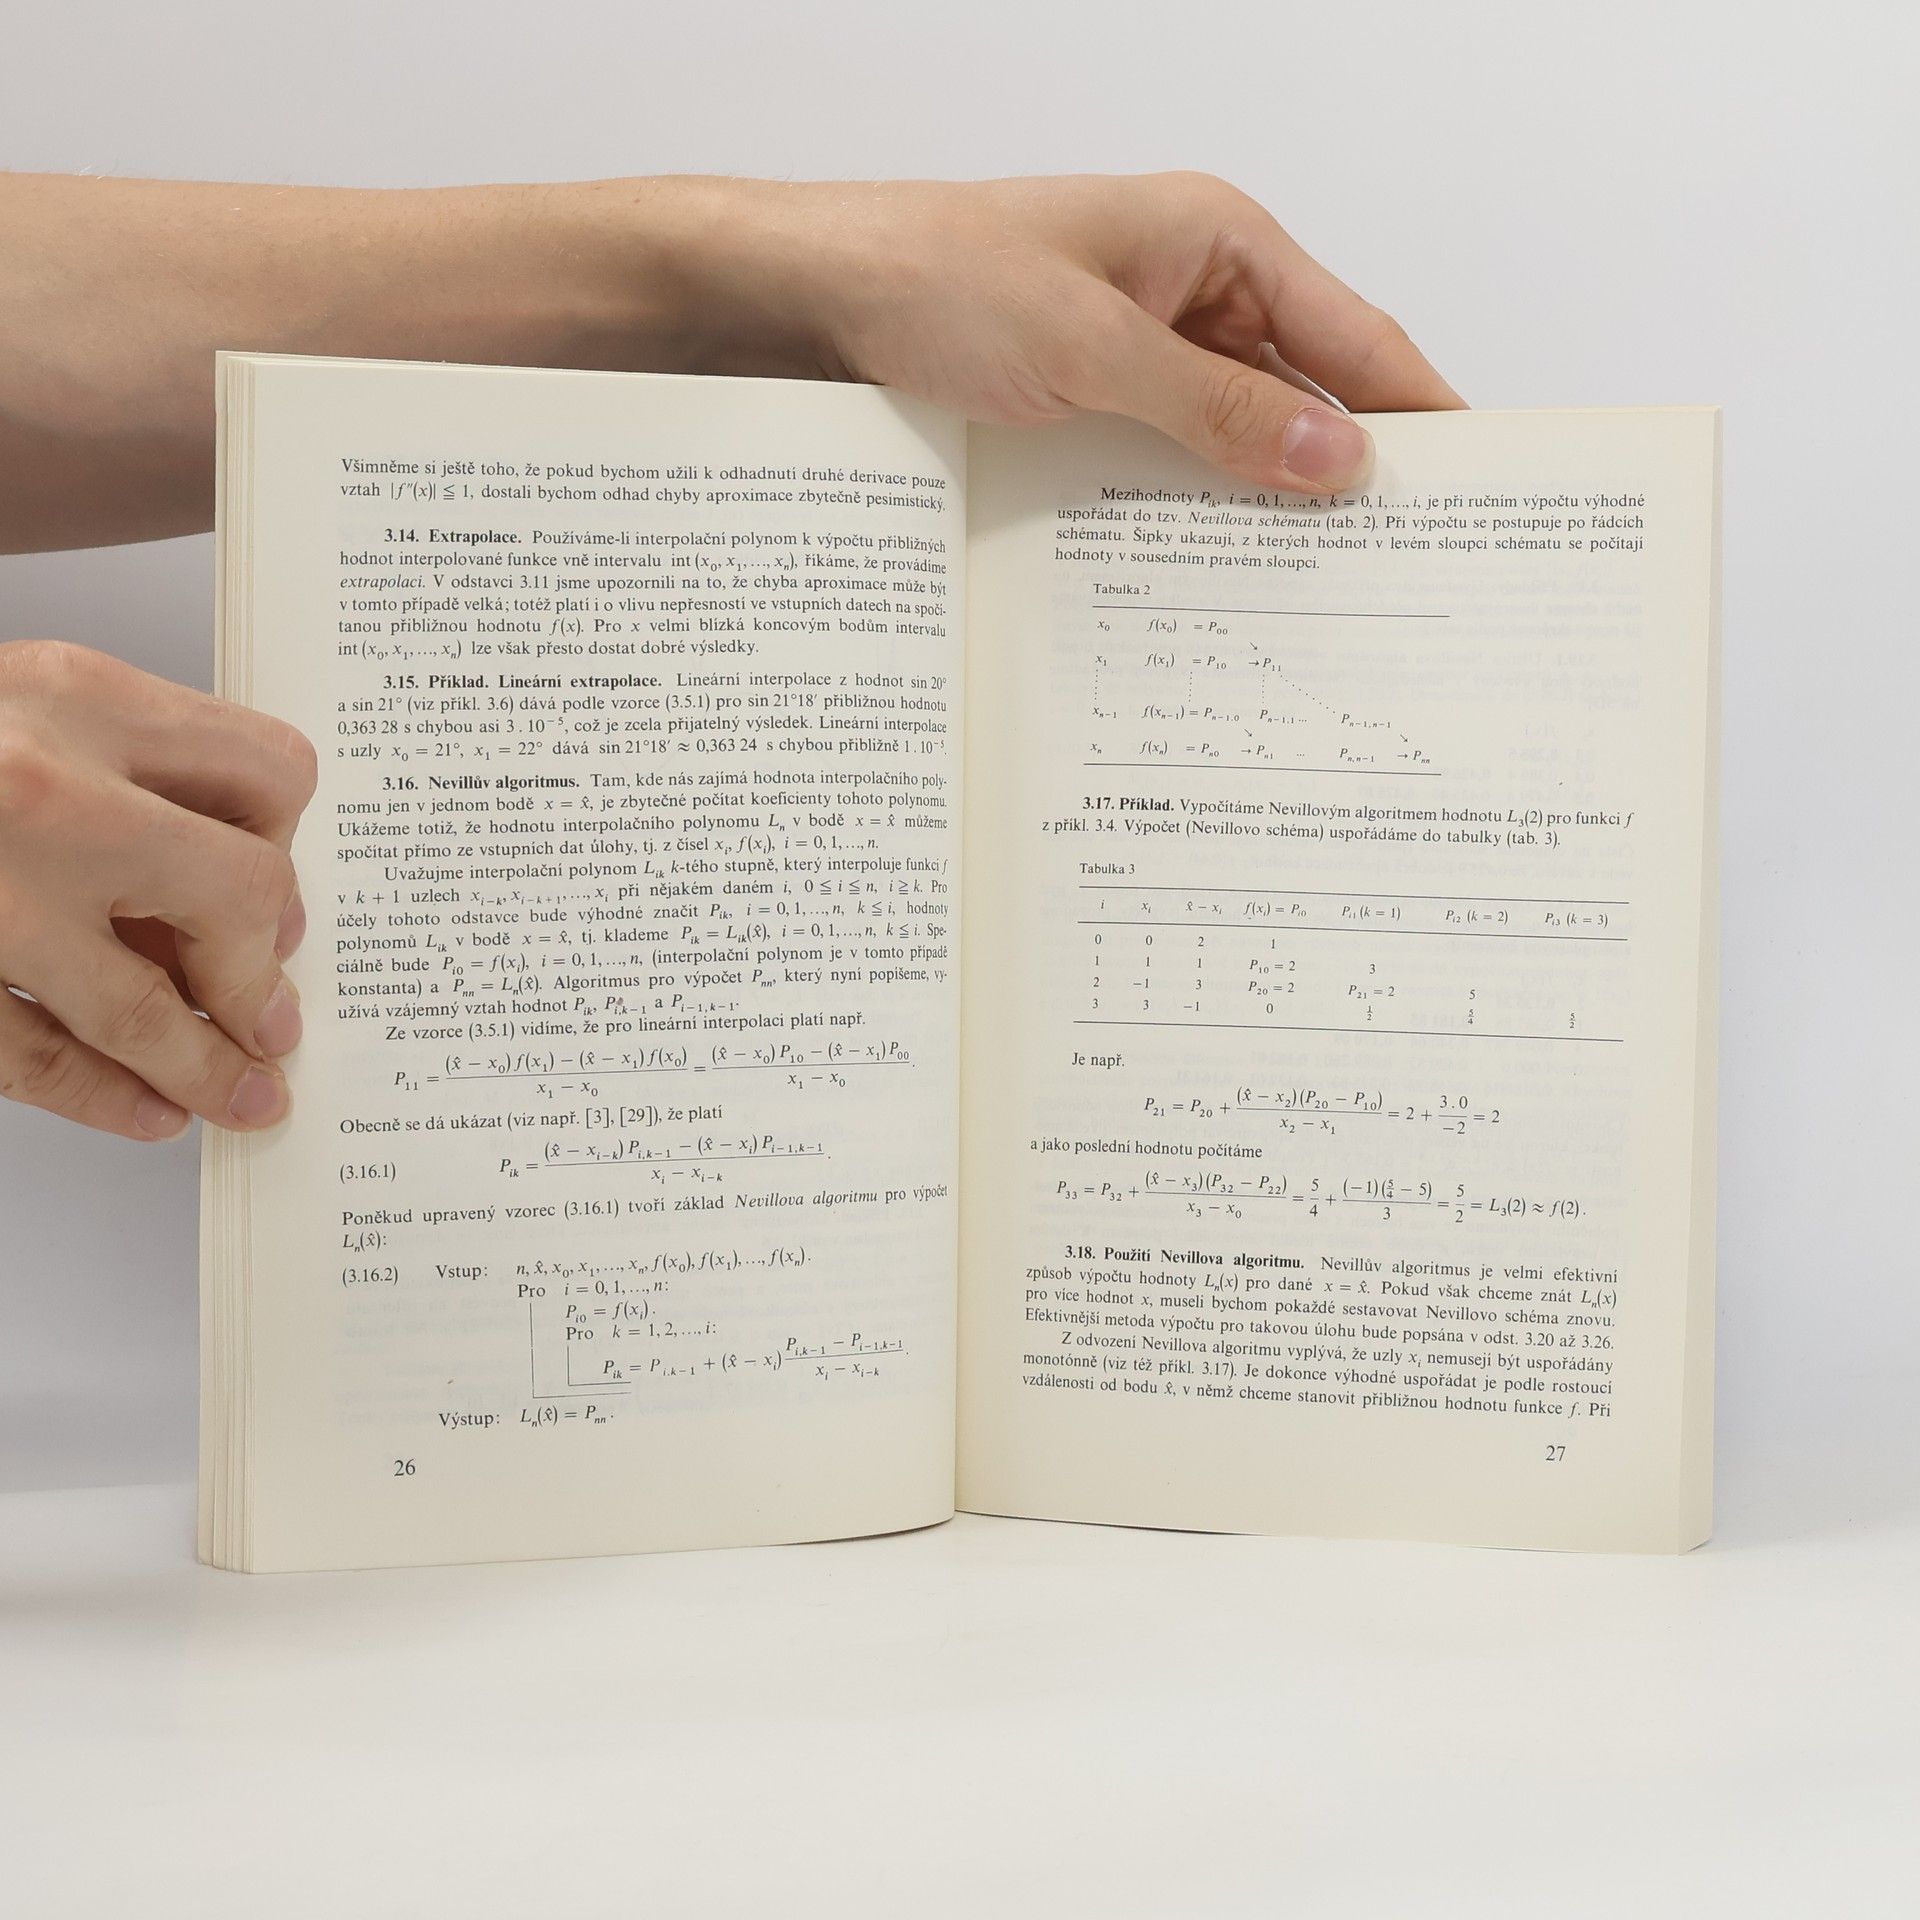 Všimněme si ještě toho, že pokud bychom užili k odhadnutí druhé derivace pouze
vztah |f″(x)| ≦ 1, dostali bychom odhad chyby aproximace zbytečně pesimistický.
3.14. Extrapolace. Používáme-li interpolační polynom k výpočtu přibližných
hodnot interpolované funkce vně intervalu int (x₀, x₁, ..., xₙ), říkáme, že provádíme
extrapolaci. V odstavci 3.11 jsme upozornili na to, že chyba aproximace může být
v tomto případě velká; totéž platí i o vlivu nepřesností ve vstupních datech na spočí-
tanou přibližnou hodnotu f(x). Pro x velmi blízká koncovým bodům intervalu
int (x₀, x₁, ..., xₙ) lze však přesto dostat dobré výsledky.
3.15. Příklad. Lineární extrapolace. Lineární interpolace z hodnot sin 20°
a sin 21° (viz příkl. 3.6) dává podle vzorce (3.5.1) pro sin 21°18′ přibližnou hodnotu
0,363 28 s chybou asi 3 . 10⁻⁵, což je zcela přijatelný výsledek. Lineární interpolace
s uzly x₀ = 21°, x₁ = 22° dává sin 21°18′ ≈ 0,363 24 s chybou přibližně 1 . 10⁻⁵.
3.16. Nevillův algoritmus. Tam, kde nás zajímá hodnota interpolačního poly-
nomu jen v jednom bodě x = x̂, je zbytečné počítat koeficienty tohoto polynomu.
Ukážeme totiž, že hodnotu interpolačního polynomu Lₙ v bodě x = x̂ můžeme
spočítat přímo ze vstupních dat úlohy, tj. z čísel xᵢ, f(xᵢ), i = 0, 1, ..., n.
Uvažujme interpolační polynom L_{ik} k-tého stupně, který interpoluje funkci f
v k + 1 uzlech x_{i-k}, x_{i-k+1}, ..., xᵢ při nějakém daném i, 0 ≦ i ≦ n, i ≧ k. Pro
účely tohoto odstavce bude výhodné značit P_{ik}, i = 0, 1, ..., n, k ≦ i, hodnoty
polynomů L_{ik} v bodě x = x̂, tj. klademe P_{ik} = L_{ik}(x̂), i = 0, 1, ..., n, k ≦ i. Spe-
ciálně bude P_{i0} = f(xᵢ), i = 0, 1, ..., n, (interpolační polynom je v tomto případě
konstanta) a P_{nn} = Lₙ(x̂). Algoritmus pro výpočet P_{nn}, který nyní popíšeme, vy-
užívá vzájemný vztah hodnot P_{ik}, P_{i,k-1} a P_{i-1,k-1}.
Ze vzorce (3.5.1) vidíme, že pro lineární interpolaci platí např.
P₁₁ = ((x̂ − x₀) f(x₁) − (x̂ − x₁) f(x₀)) / (x₁ − x₀) = ((x̂ − x₀) P₁₀ − (x̂ − x₁) P₀₀) / (x₁ − x₀).
Obecně se dá ukázat (viz např. [3], [29]), že platí
(3.16.1) P_{ik} = ((x̂ − x_{i-k}) P_{i,k-1} − (x̂ − xᵢ) P_{i-1,k-1}) / (xᵢ − x_{i-k}).
Poněkud upravený vzorec (3.16.1) tvoří základ Nevillova algoritmu pro výpočet
Lₙ(x̂):
(3.16.2) Vstup: n, x̂, x₀, x₁, ..., xₙ, f(x₀), f(x₁), ..., f(xₙ).
Pro i = 0, 1, ..., n:
P_{i0} = f(xᵢ).
Pro k = 1, 2, ..., i:
P_{ik} = P_{i,k-1} + (x̂ − xᵢ) (P_{i,k-1} − P_{i-1,k-1}) / (xᵢ − x_{i-k}).
Výstup: Lₙ(x̂) = P_{nn}.
26
Mezihodnoty P_{ik}, i = 0, 1, ..., n, k = 0, 1, ..., i, je při ručním výpočtu výhodné
uspořádat do tzv. Nevillova schématu (tab. 2). Při výpočtu se postupuje po řádcích
schématu. Šipky ukazují, z kterých hodnot v levém sloupci schématu se počítají
hodnoty v sousedním pravém sloupci.
Tabulka 2
x₀ f(x₀) = P₀₀
↘
x₁ f(x₁) = P₁₀ → P₁₁
x_{n-1} f(x_{n-1}) = P_{n-1,0} P_{n-1,1} ... P_{n-1,n-1}
↘ ↘
xₙ f(xₙ) = P_{n0} → P_{n1} ... P_{n,n-1} → P_{nn}
3.17. Příklad. Vypočítáme Nevillovým algoritmem hodnotu L₃(2) pro funkci f
z příkl. 3.4. Výpočet (Nevillovo schéma) uspořádáme do tabulky (tab. 3).
Tabulka 3
i xᵢ x̂ − xᵢ f(xᵢ) = P_{i0} P_{i1} (k = 1) P_{i2} (k = 2) P_{i3} (k = 3)
0 0 2 1
1 1 1 P₁₀ = 2 3
2 −1 3 P₂₀ = 2 P₂₁ = 2 5
3 3 −1 0 1/2 5/4 5/2
Je např.
P₂₁ = P₂₀ + ((x̂ − x₂)(P₂₀ − P₁₀)) / (x₂ − x₁) = 2 + (3 . 0) / (−2) = 2
a jako poslední hodnotu počítáme
P₃₃ = P₃₂ + ((x̂ − x₃)(P₃₂ − P₂₂)) / (x₃ − x₀) = 5/4 + ((−1)(5/4 − 5)) / 3 = 5/2 = L₃(2) ≈ f(2).
3.18. Použití Nevillova algoritmu. Nevillův algoritmus je velmi efektivní
způsob výpočtu hodnoty Lₙ(x) pro dané x = x̂. Pokud však chceme znát Lₙ(x)
pro více hodnot x, museli bychom pokaždé sestavovat Nevillovo schéma znovu.
Efektivnější metoda výpočtu pro takovou úlohu bude popsána v odst. 3.20 až 3.26.
Z odvození Nevillova algoritmu vyplývá, že uzly xᵢ nemusejí být uspořádány
monotónně (viz též příkl. 3.17). Je dokonce výhodné uspořádat je podle rostoucí
vzdálenosti od bodu x̂, v němž chceme stanovit přibližnou hodnotu funkce f. Při
27